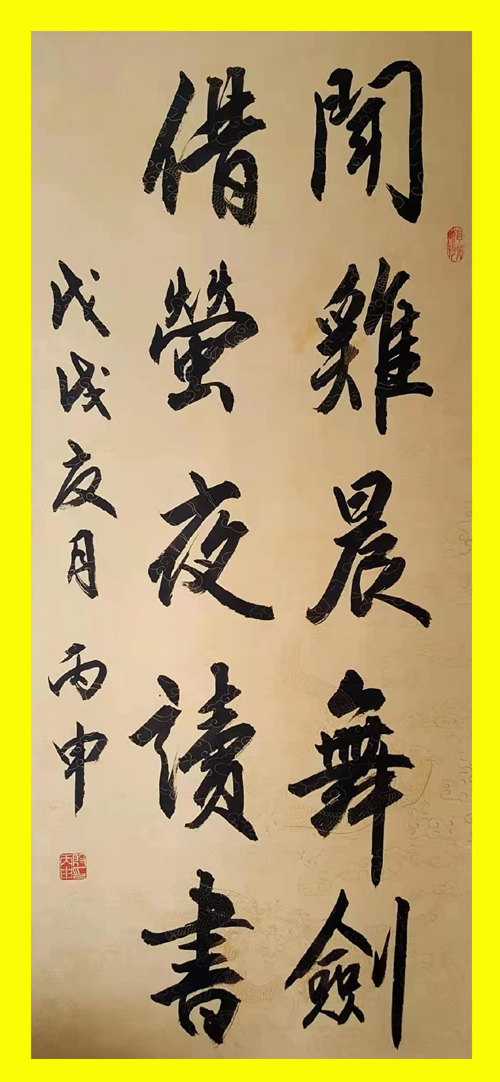 聞雞晨舞劍
借螢夜讀書
戊戌夏月 丙申